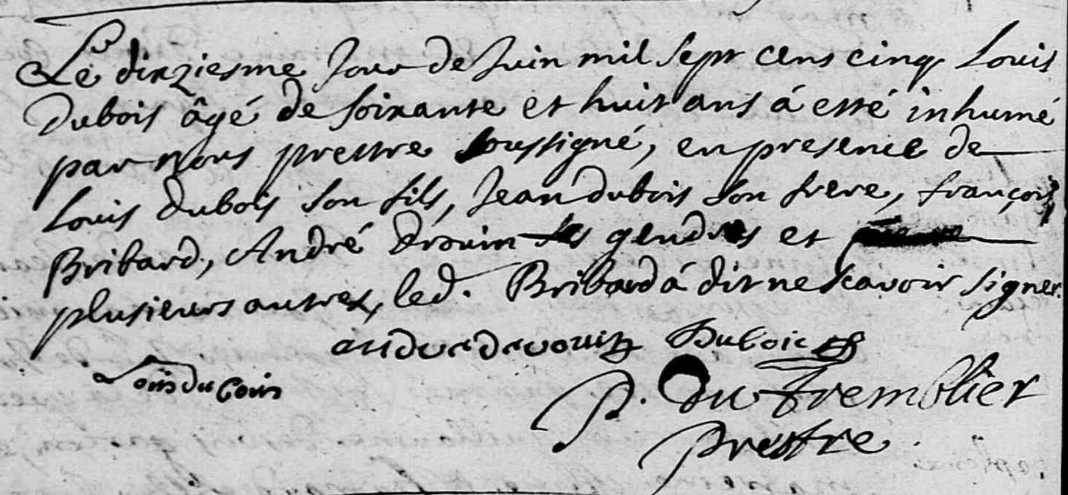 Le dixziesme Jour de Juin mil sept cens cinq Louis
Dubois âgé de soixante et huit ans á esté inhumé
par Nous prestre soussigné, en presence de
Louis Dubois son fils, Jean dubois son frere, françois
Bribard, André Drouin ses gendres et
plusieurs autres, led. Bribard á dit ne scavoir signer.
andre derouin Dubois
Louis du bois
P. Du Tremblier
prestre